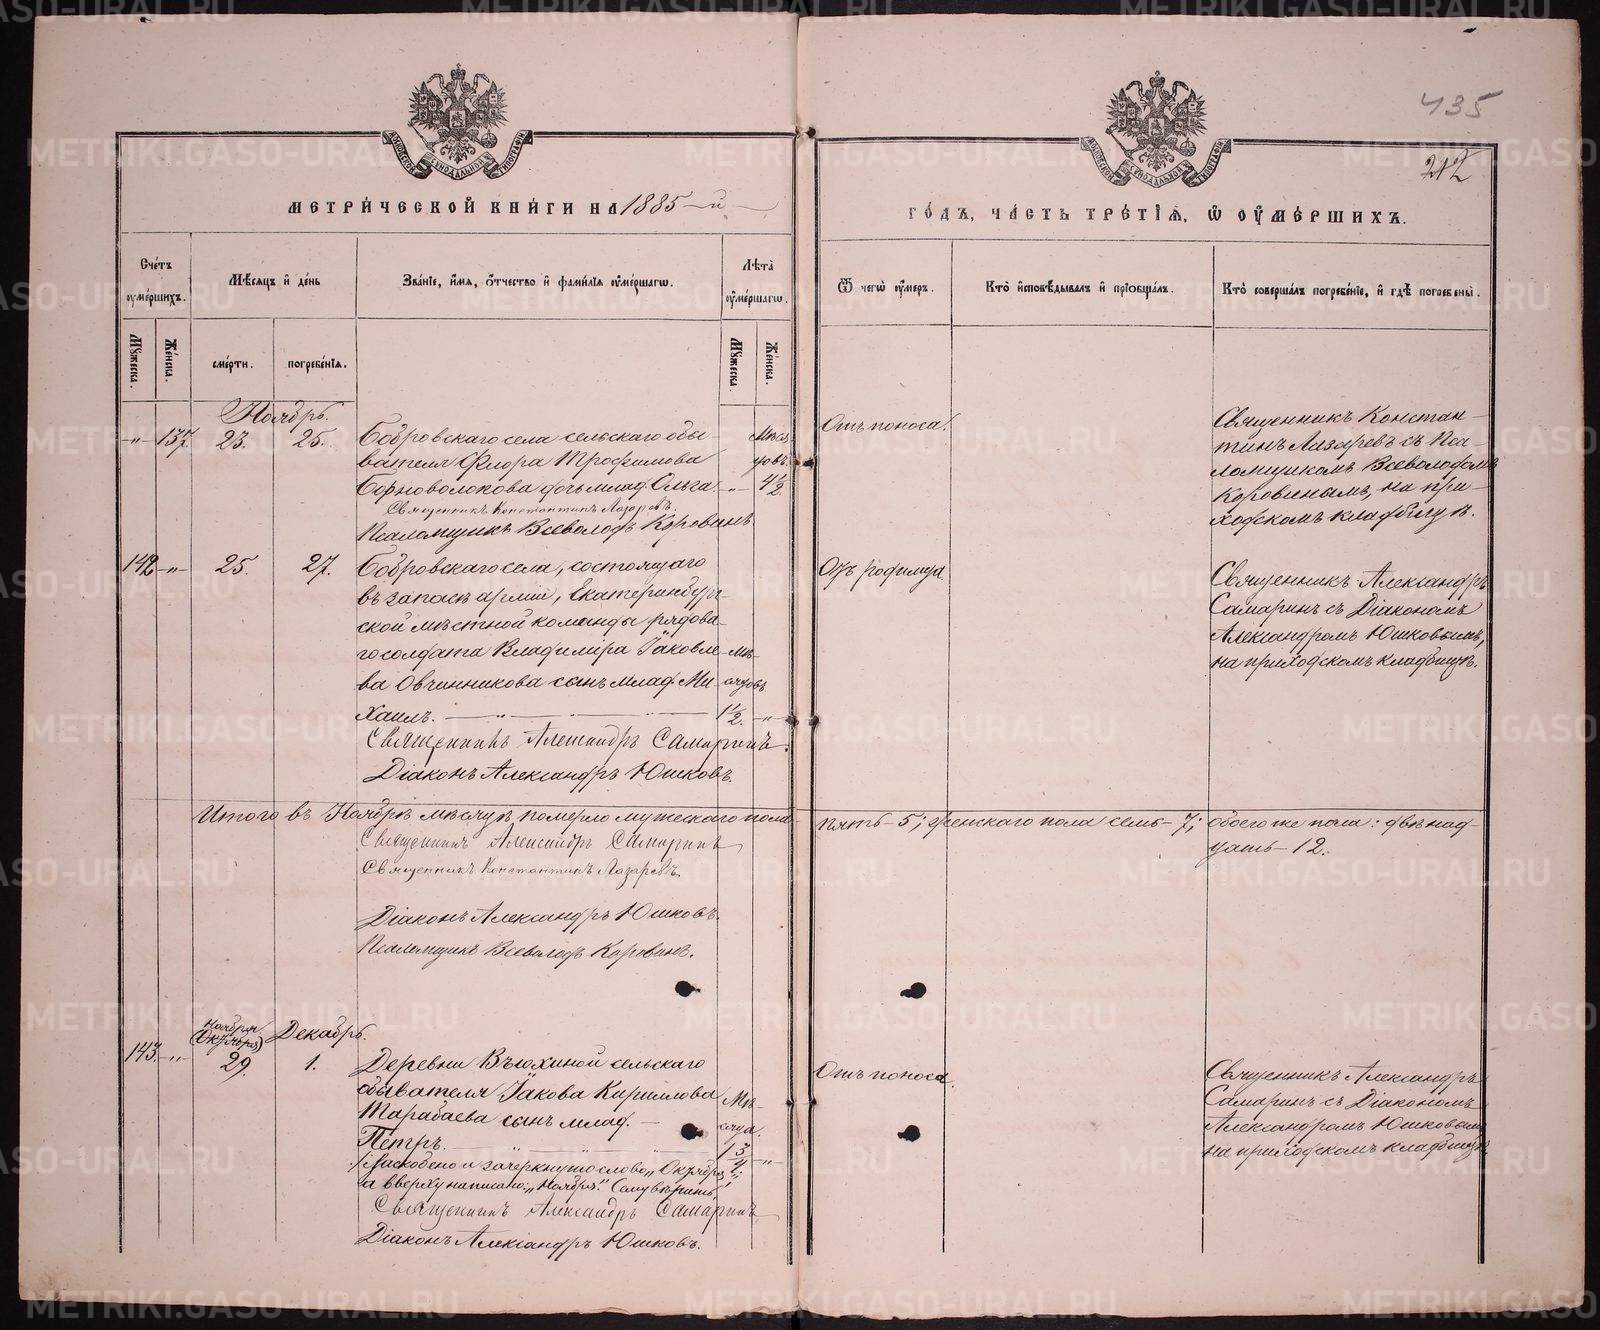 435
212
МЕТРИЧЕСКОЙ КНИГИ НА 1885-й
ГОДЪ, ЧАСТЬ ТРЕТІЯ, Ѿ ОУМЕРШИХЪ.
Счетъ оумершихъ.
Мѣсяцъ и день
Званіе, имя, отчество и фамилія оумершагѡ.
Лѣта оумершагѡ.
Ѿ чегѡ оумеръ.
Кто исповѣдывалъ и пріобщалъ.
Кто совершалъ погребеніе, и гдѣ погребены.
Мужеска.
Женска.
смерти.
погребенія.
Мужеска.
Женска.
Ноябрь.
-"- 137. 23. 25. Бобровскаго села сельскаго обы-
вателя Флора Трофимова
Черноволокова дочь млад. Ольга. -"- 4½
Мѣся
цовъ.
Священникъ Константинъ Лазаревъ.
Псаломщикъ Всеволодъ Коровинъ.
Отъ поноса.
Священникъ Констан-
тинъ Лазаревъ съ Пса-
ломщикомъ Всеволодомъ
Коровинымъ, на при-
ходскомъ кладбищѣ.
142 -"- 25. 27. Бобровскаго села, состоящаго
въ запасѣ арміи, Екатеринбург-
ской мѣстной команды рядова-
го солдата Владиміра Іаковле-
ва Овчинникова сынъ млад. Ми-
хаилъ. 1½. -"-
мѣ-
сяцовъ
Священникъ Александръ Самаринъ.
Діаконъ Александръ Юшковъ.
Отъ родимца
Священникъ Александръ
Самаринъ съ Діакономъ
Александромъ Юшковымъ,
на приходскомъ кладбищѣ.
Итого въ Ноябрѣ мѣсяцѣ померло мужескаго пола пять-5; женскаго пола семь-7; обоего же пола: двѣнад-
цать-12.
Священникъ Александръ Самаринъ
Священникъ Константинъ Лазаревъ.
Діаконъ Александръ Юшковъ.
Псаломщикъ Всеволодъ Коровинъ.
Ноября
(Октября)
Декабрь.
143. -"- 29. 1. Деревни Вьюхиной сельскаго
обывателя Іакова Кириллова
Тарабаева сынъ млад. Мѣ-
сяца.
Петръ. 1¾. -"-
/Наскоблено и зачеркнуто слово "Октября",
а вверху написано: "Ноября." Сему вѣрить/
Священникъ Александръ Самаринъ
Діаконъ Александръ Юшковъ.
Отъ поноса.
Священникъ Александръ
Самаринъ съ Діакономъ
Александромъ Юшковымъ
на приходскомъ кладбищѣ.
METRIKI.GASO-URAL.RU